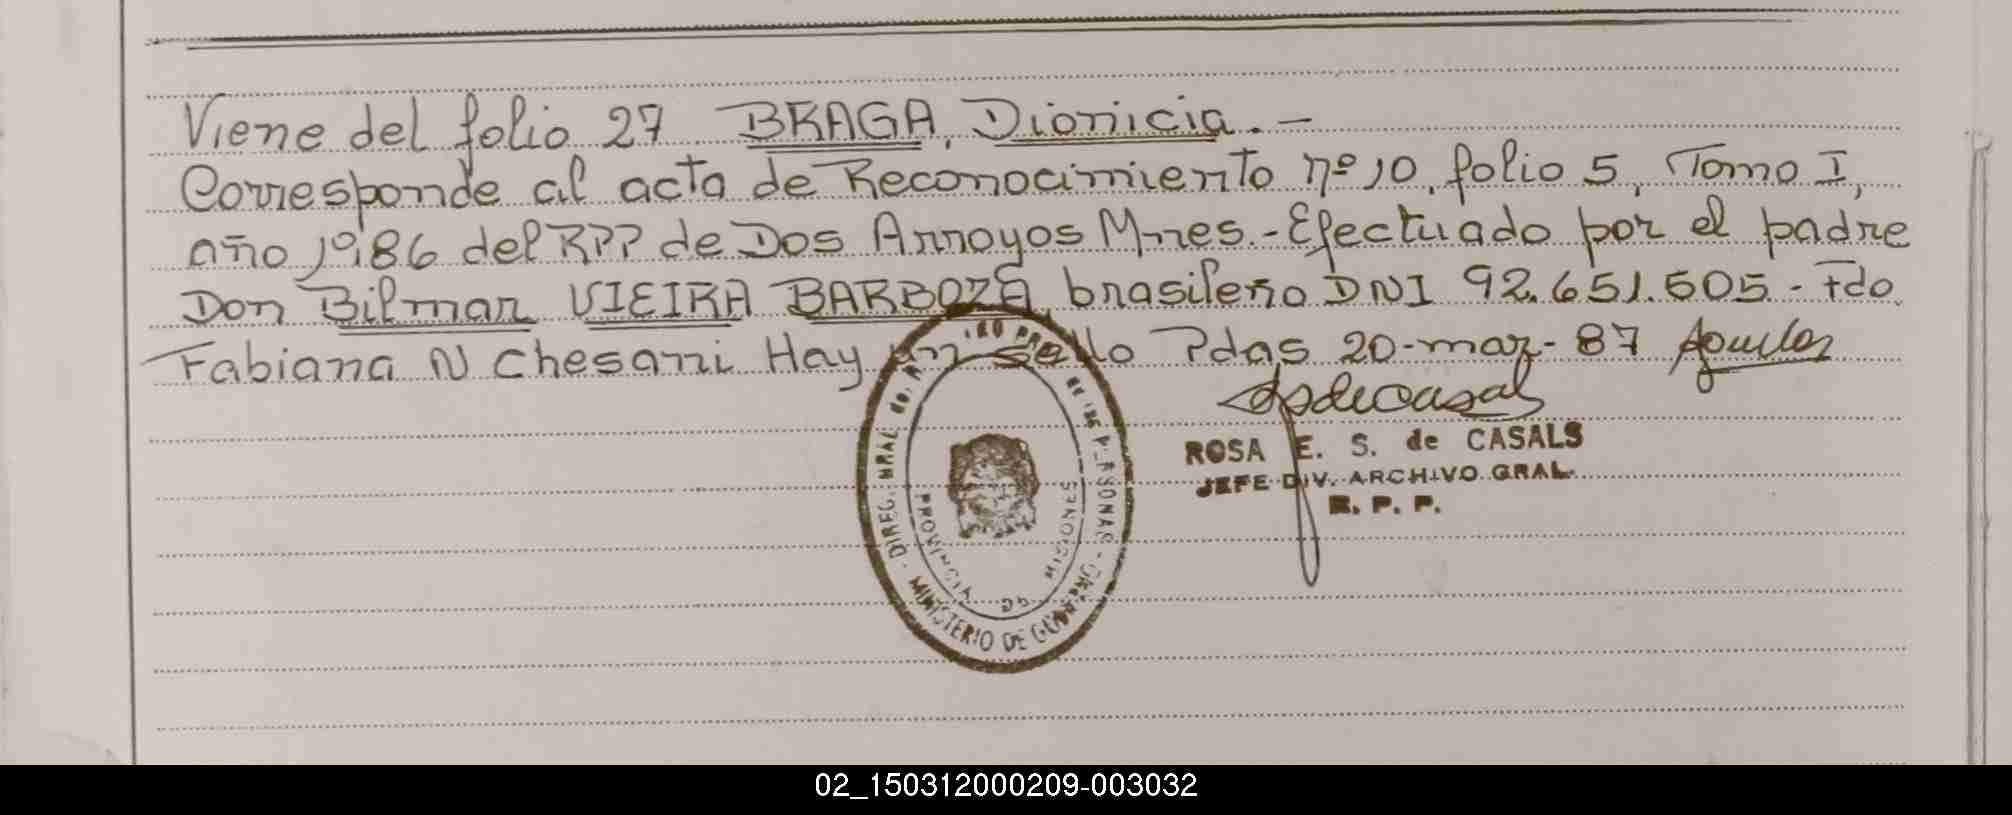 Viene del folio 27 BRAGA, Dionicia.-
Corresponde al acta de Reconocimiento nº 10, folio 5, Tomo I,
año 1986 del RPP de Dos Arroyos Mnes.- Efectuado por el padre
Don Bilmar VIEIRA BARBOZA, brasileño DNI 92.651.505.- Fdo
Fabiana N Chesani Hay un sello Pdas 20-mar-87
ROSA E. S. de CASALS
JEFE DIV. ARCHIVO GRAL.
R. P. P.
DIREC. GRAL. DE LAS PERSONAS - MINISTERIO DE GOBIERNO
PROVINCIA DE MISIONES
02_150312000209-003032